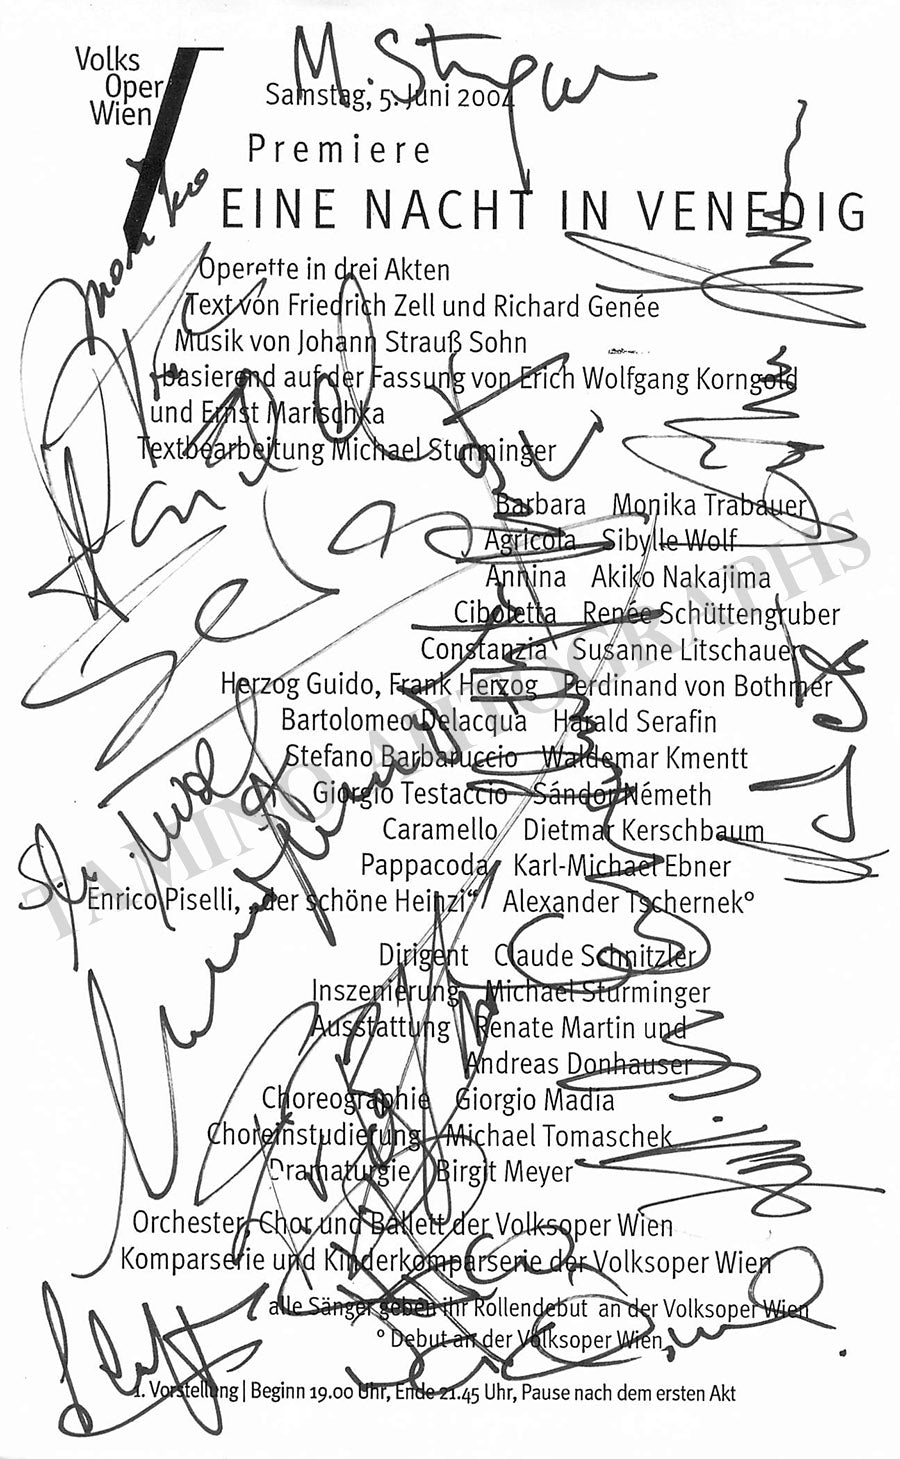 Volks
Oper
Wien
Samstag, 5. Juni 2004
Premiere
EINE NACHT IN VENEDIG
Operette in drei Akten
Text von Friedrich Zell und Richard Genée
Musik von Johann Strauß Sohn
basierend auf der Fassung von Erich Wolfgang Korngold
und Ernst Marischka
Textbearbeitung Michael Sturminger
Barbara Monika Trabauer
Agricola Sibylle Wolf
Annina Akiko Nakajima
Ciboletta Renée Schüttengruber
Constanzia Susanne Litschauer
Herzog Guido, Frank Herzog Ferdinand von Bothmer
Bartolomeo Delacqua Harald Serafin
Stefano Barbaruccio Waldemar Kmentt
Giorgio Testaccio Sándor Németh
Caramello Dietmar Kerschbaum
Pappacoda Karl-Michael Ebner
Enrico Piselli, „der schöne Heinzi“ Alexander Tschernek°
Dirigent Claude Schnitzler
Inszenierung Michael Sturminger
Ausstattung Renate Martin und
Andreas Donhauser
Choreographie Giorgio Madia
Choreinstudierung Michael Tomaschek
Dramaturgie Birgit Meyer
Orchester, Chor und Ballett der Volksoper Wien
Komparserie und Kinderkomparserie der Volksoper Wien
alle Sänger geben ihr Rollendebut an der Volksoper Wien
° Debut an der Volksoper Wien
1. Vorstellung | Beginn 19.00 Uhr, Ende 21.45 Uhr, Pause nach dem ersten Akt
TAMINO AUTOGRAPHS